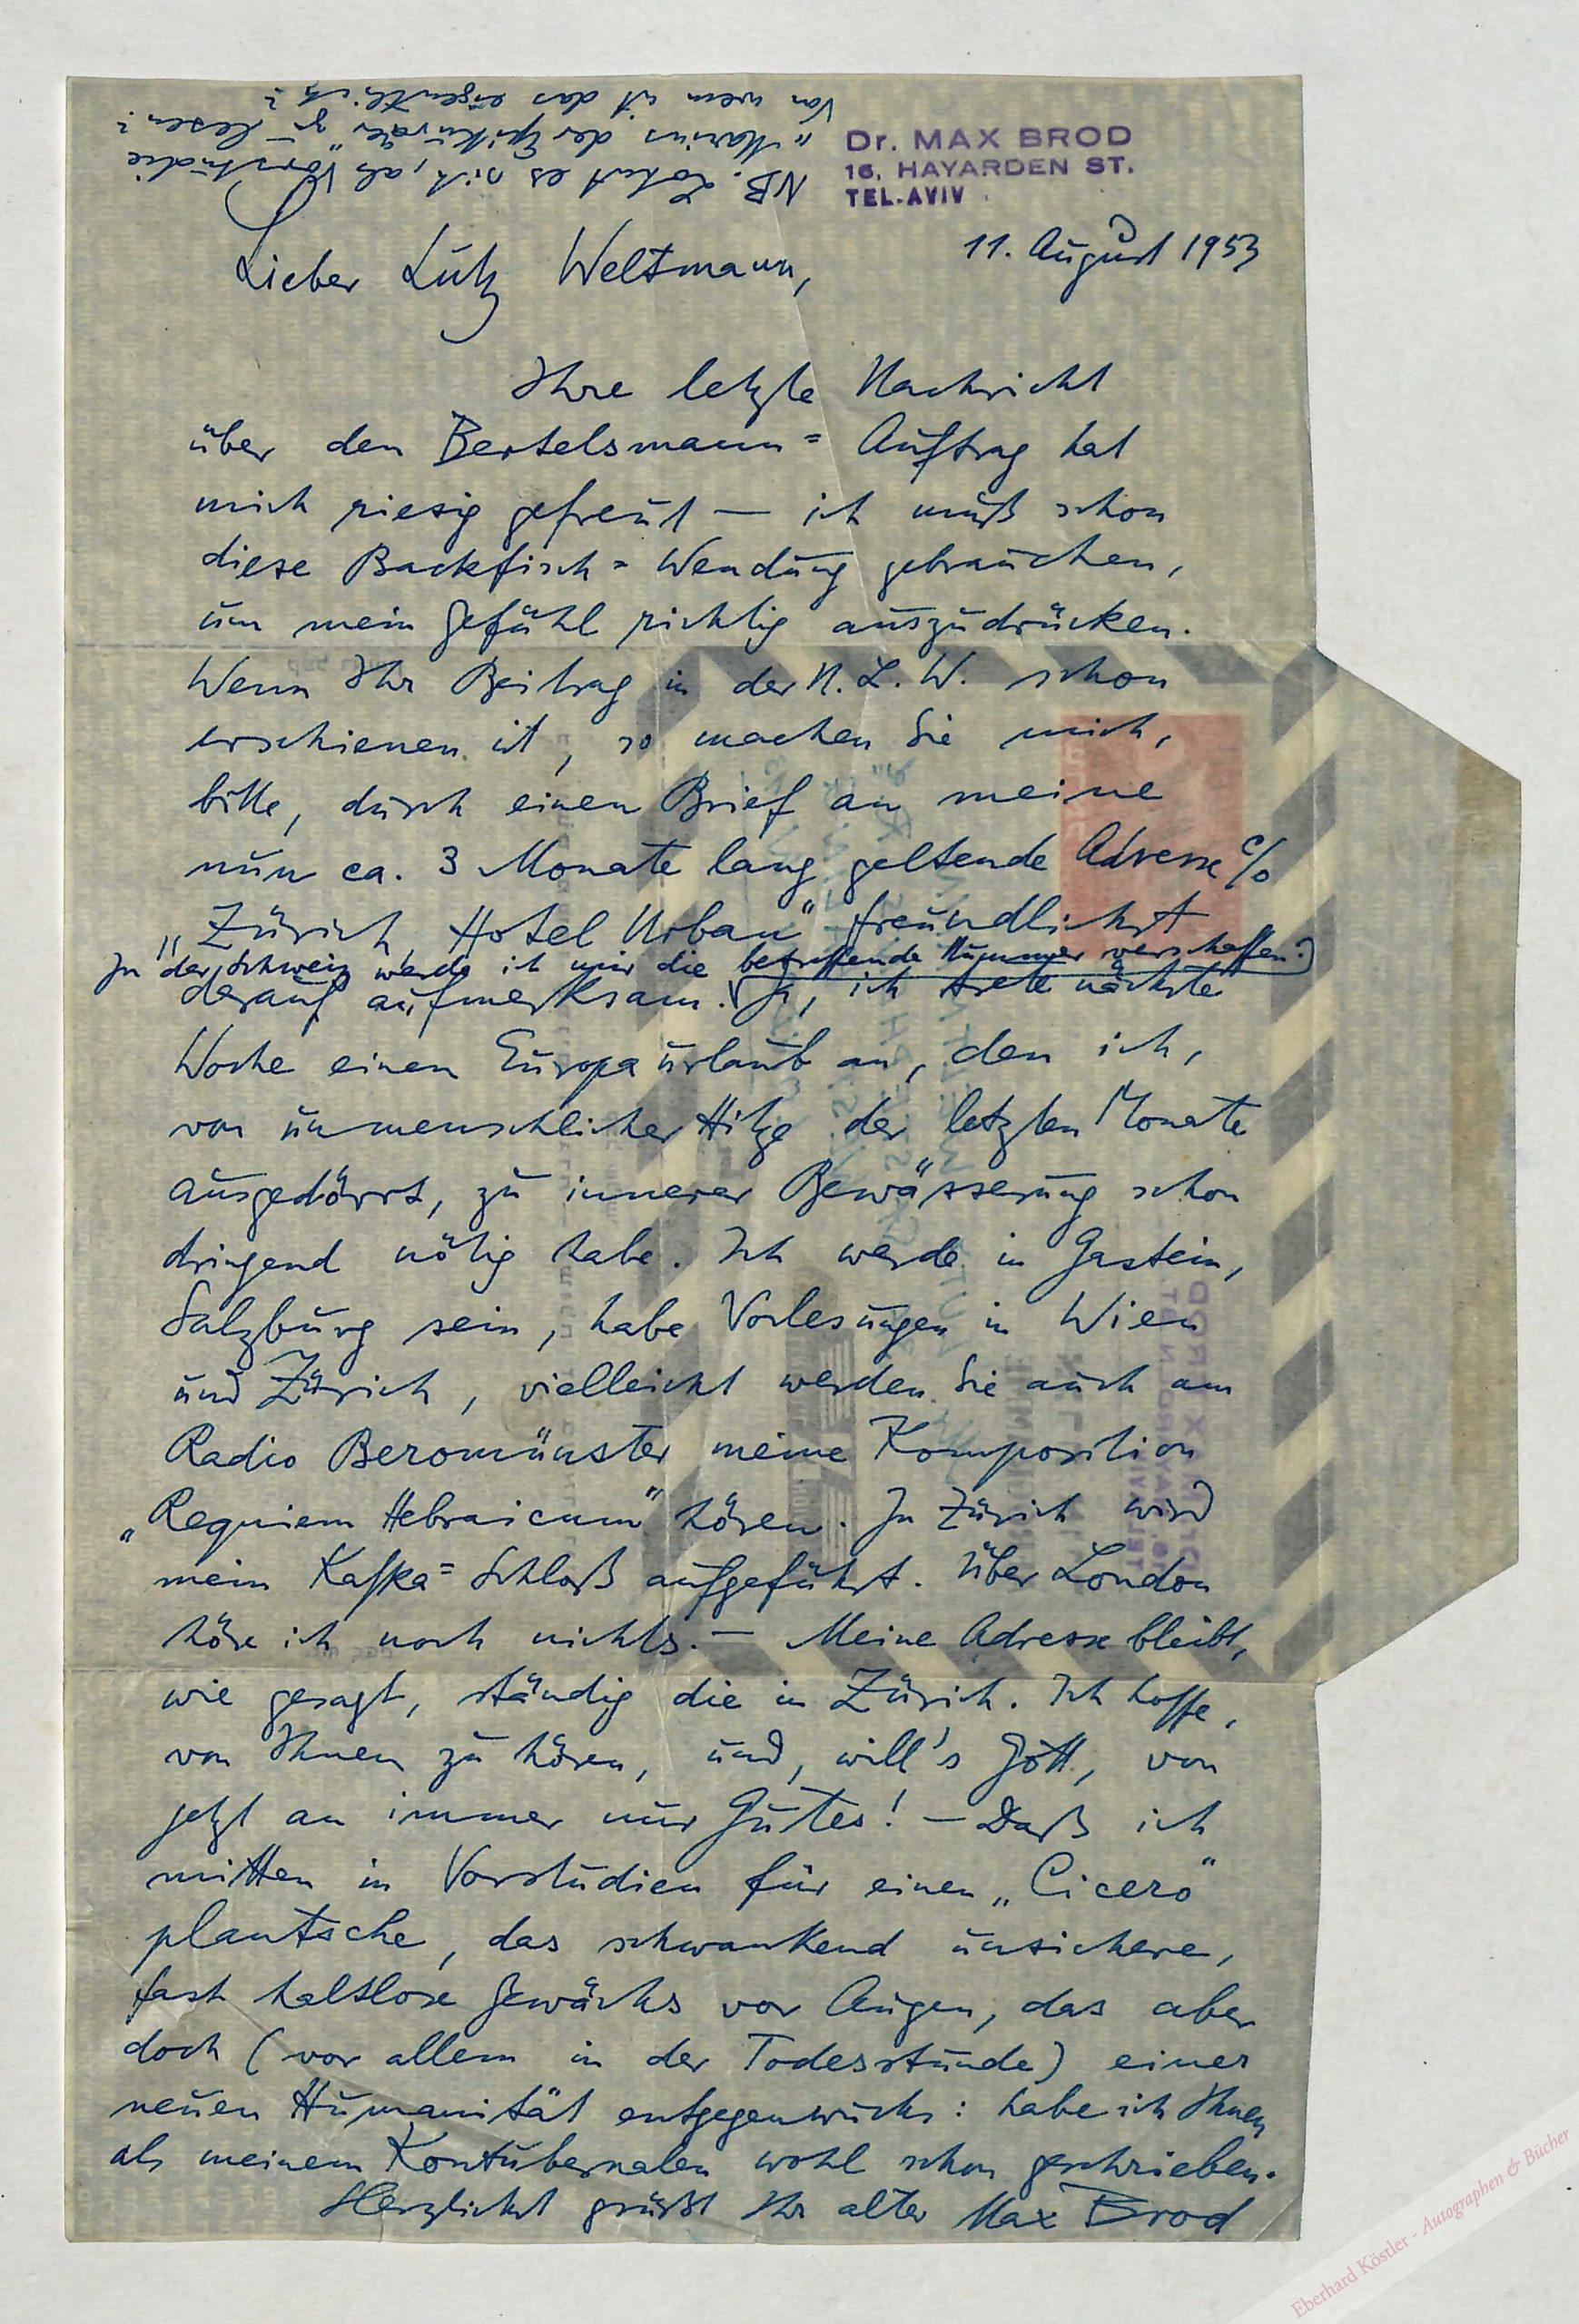 Dr. MAX BROD
16, HAYARDEN ST.
TEL-AVIV
11. August 1953
Lieber Lutz Weltmann,
Ihre letzte Nachricht
über den Bertelsmann=Auftrag hat
mich riesig gefreut — ich muß schon
diese Backfisch=Wendung gebrauchen,
um mein Gefühl richtig auszudrücken.
Wenn Ihr Beitrag in der N. L. W. schon
erschienen ist, so machen Sie mich,
bitte, durch einen Brief an meine
nun ca. 3 Monate lang geltende Adresse c/o
„Zürich, Hotel Urban“ freundlichst
In der Schweiz werde ich mir die betreffende Nummer verschaffen.)
darauf aufmerksam. Ja, ich trete nächste
Woche einen Europaurlaub an, den ich,
von unmenschlicher Hitze der letzten Monate
ausgedörrt, zu innerer Bewässerung schon
dringend nötig habe. Ich werde in Gastein,
Salzburg sein, habe Vorlesungen in Wien
und Zürich, vielleicht werden Sie auch am
Radio Beromünster meine Komposition
„Requiem Hebraicum“ hören. In Zürich wird
mein Kafka=Schloß aufgeführt. Über London
höre ich noch nichts. — Meine Adresse bleibt,
wie gesagt, ständig die in Zürich. Ich hoffe,
von Ihnen zu hören, und, will's Gott, von
jetzt an immer nur Gutes! — Daß ich
mitten in Vorstudien für einen „Cicero“
plantsche, das schwankend unsichere,
fast haltlose Gewächs vor Augen, das aber
doch (vor allem in der Todesstunde) einer
neuen Humanität entgegenwuchs: habe ich Ihnen
als meinem Kontubernalen wohl schon geschrieben.
Herzlichst grüßt Ihr alter Max Brod
NB. Lohnt es sich, als Vorstudie
„Marius der Epikuräer“ zu lesen?
Von wem ist das eigentlich?
Eberhard Köstler - Autographen & Bücher